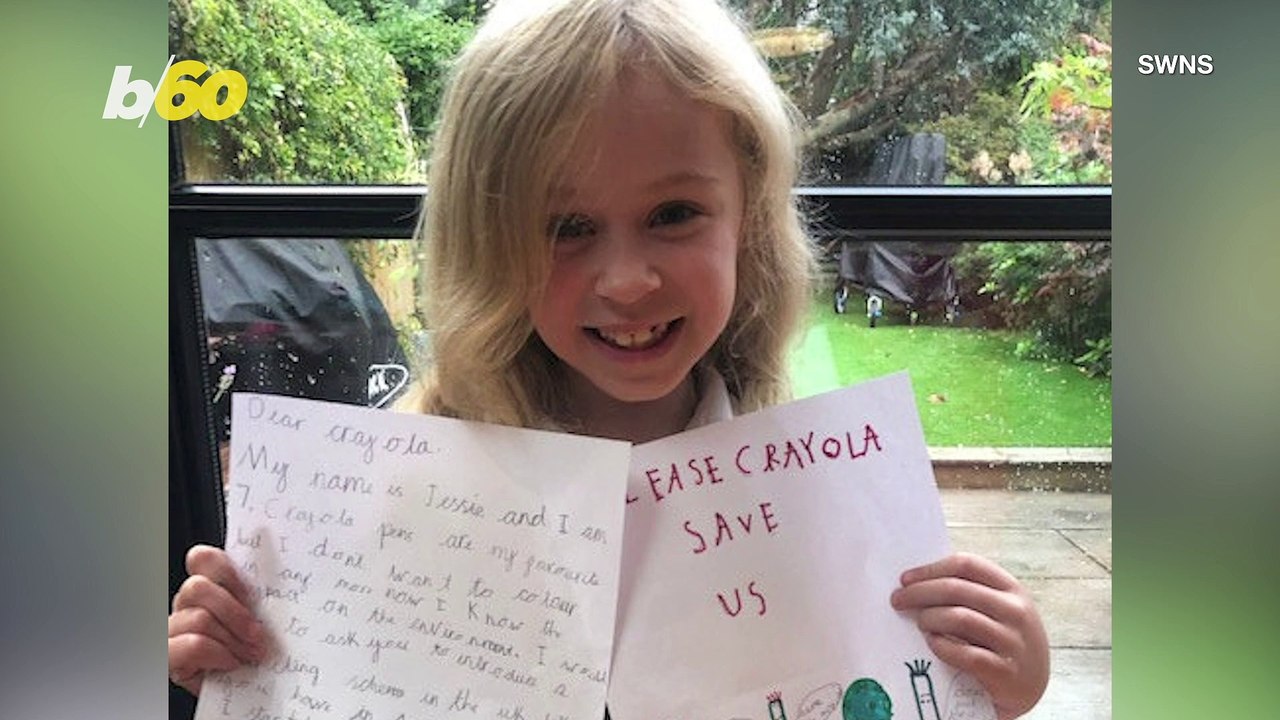 b/60
SWNS
Dear crayola.
My name is Jessie and I am
7. Crayola pens are my favourite
but I dont want to colour
in any more now I know the
on the environment. I would
to ask you to introduce a
scheme in the uk
LEASE CRAYOLA
SAVE
US